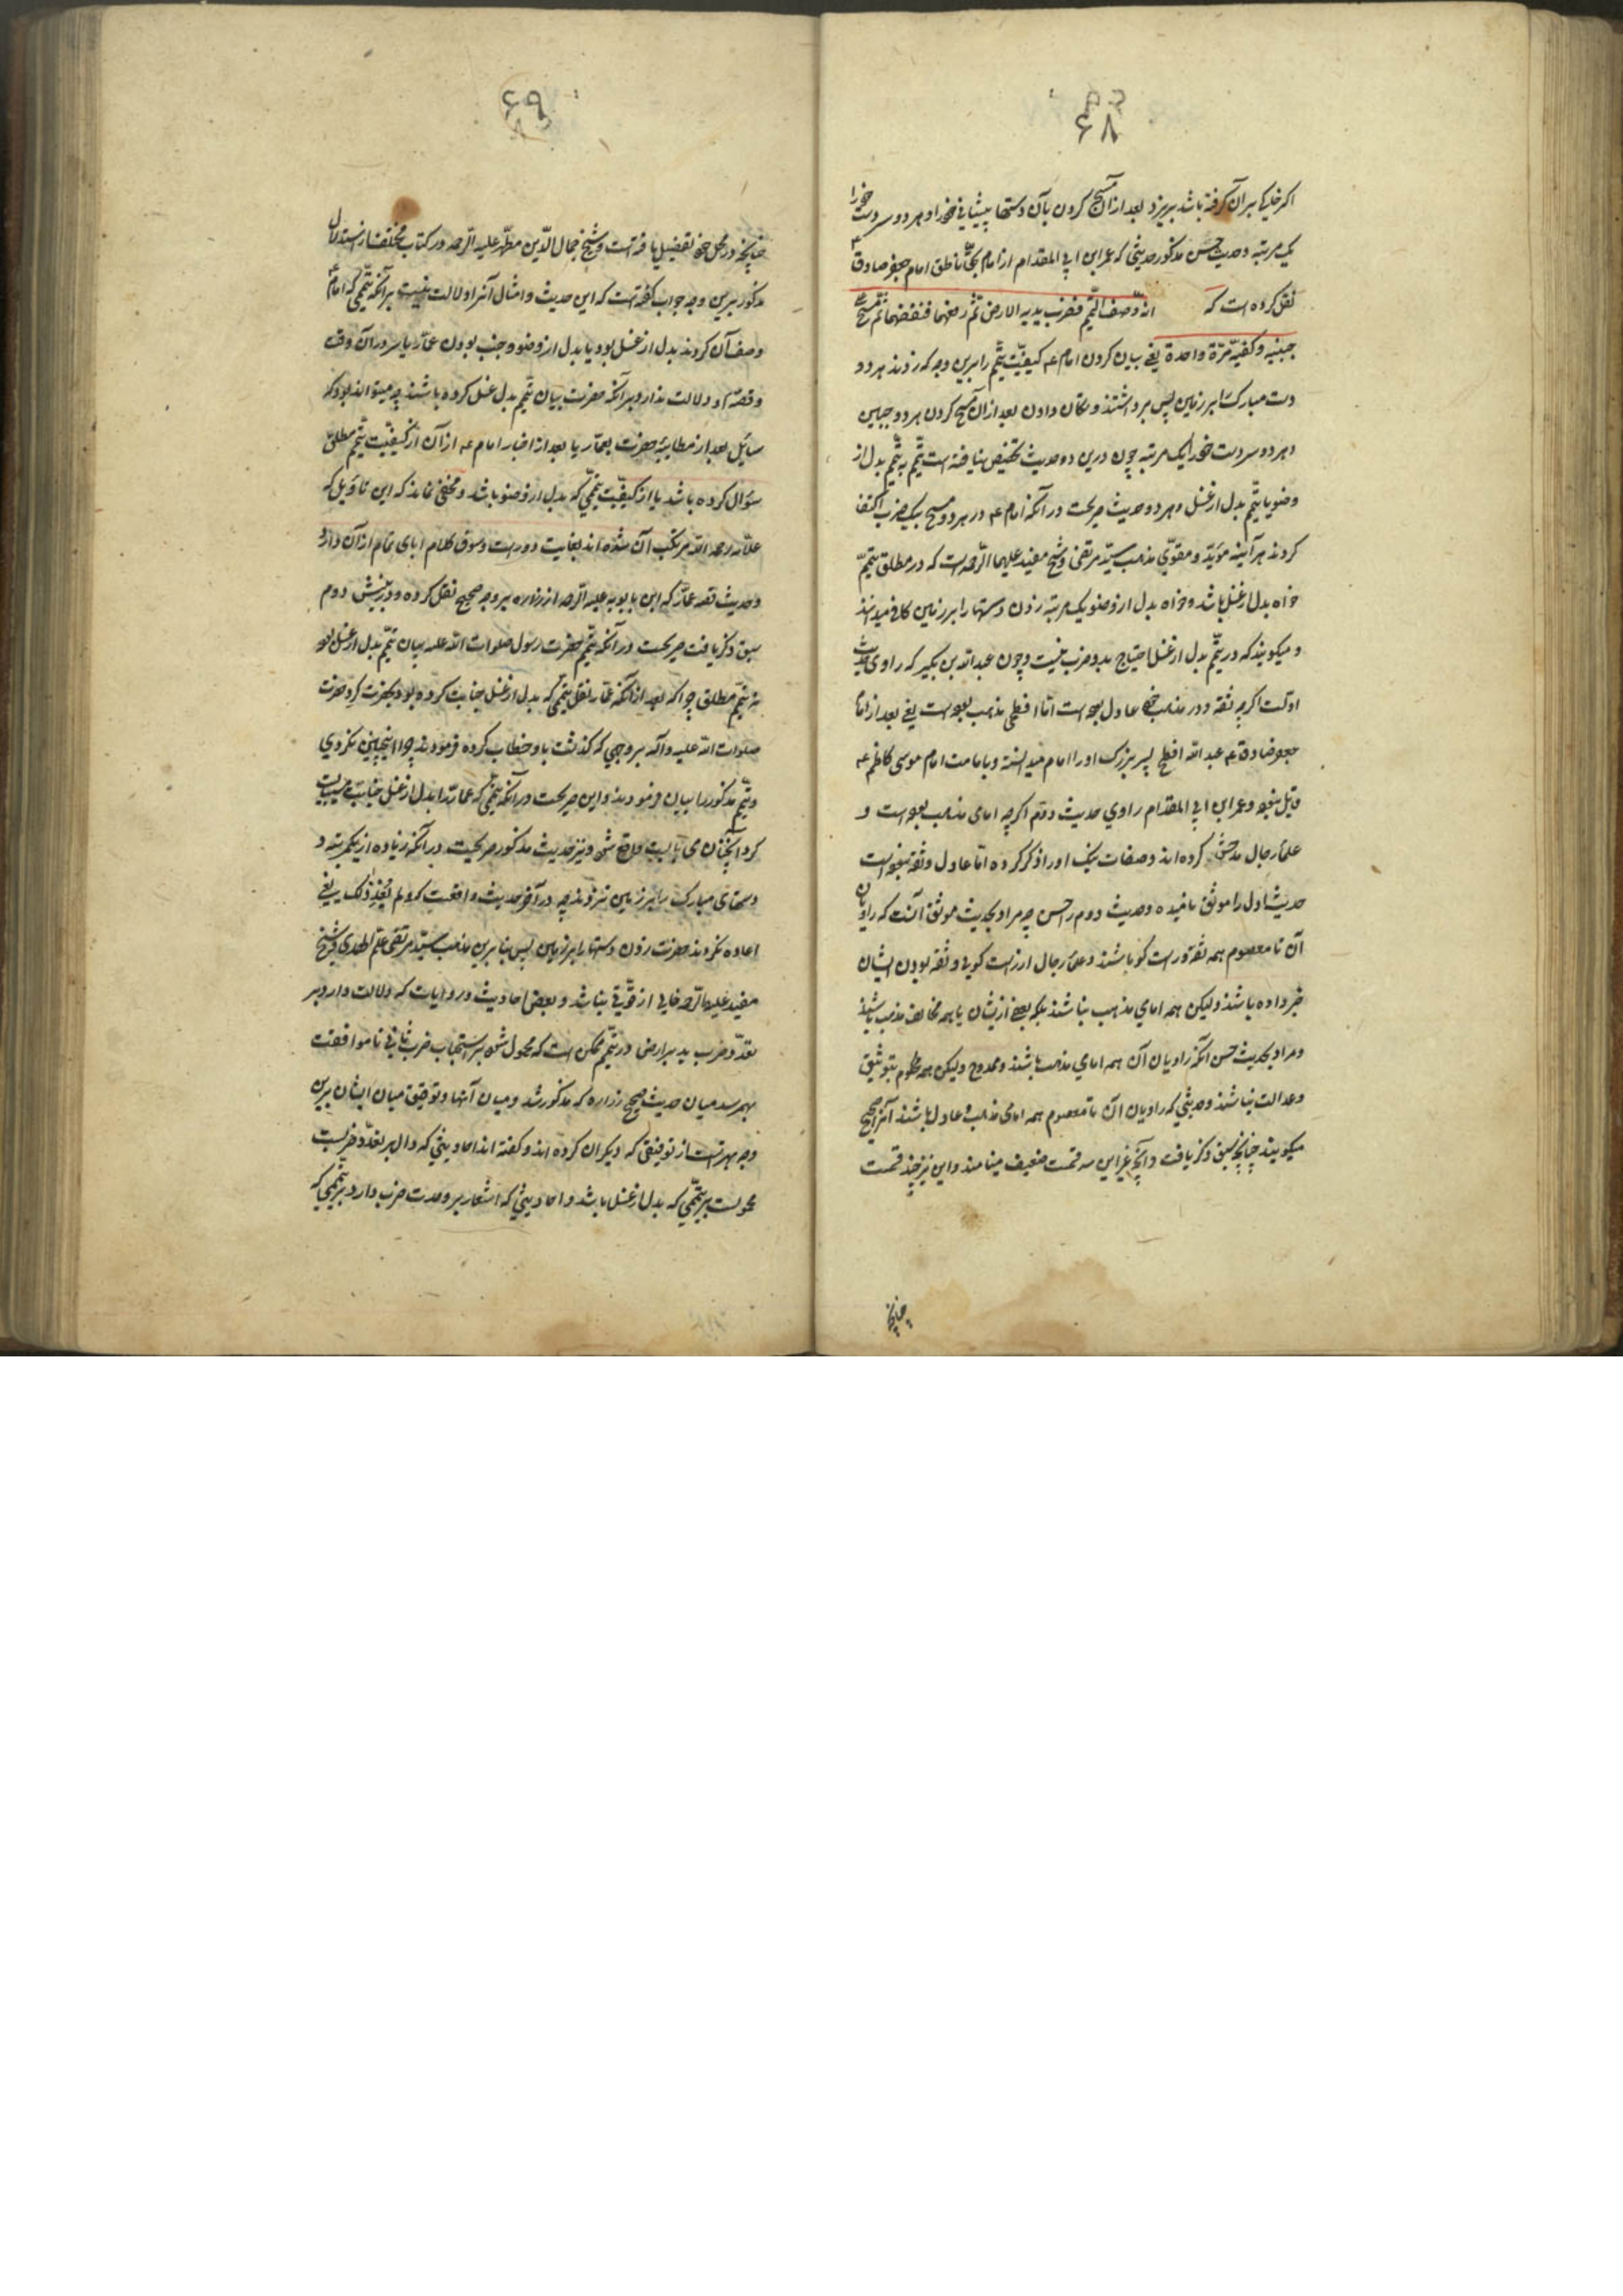 ۶۸
اگر خاک بر آن گرفته باشد بریزد بعد از آن مسح کردن بآن دستها پیشانی خود را و هر دو سر دست خود را
یک مرتبه و حدیث حسن مذکور حدیثی که عمر ابن ابی المقدام از امام بحق ناطق امام جعفر صادق ع
نقل کرده است که انه وصف التیمم فضرب بیدیه الارض ثم رفعهما فنفضهما ثم مسح علی
جبینیه و کفیه مرة واحدة یعنی بیان کردن امام ع کیفیت تیمم را برین وجه که زدند هر دو
دست مبارک را بر زمین پس برداشتند و تکان دادن بعد از آن مسح کردن هر دو جبین
و هر دو سر دست خود را یک مرتبه چون درین دو حدیث تخصیص نیافته است تیمم به تیمم بدل از
وضو یا تیمم بدل از غسل و هر دو حدیث صریحست در آنکه امام ع در هر دو مسح بیک ضرب اکتفا
کردند هر آینه مؤید و مقوی مذهب سید مرتضی و شیخ مفید علیهما الرحمه است که در مطلق تیمم
خواه بدل از غسل باشد و خواه بدل از وضو یک مرتبه زدن دستها را بر زمین کافی میدانند
و میگویند که در تیمم بدل از غسل احتیاج بدو ضرب نیست و چون عبدالله بن بکیر که راوی حدیث
اولست اگرچه ثقه و در مذهب خود عادل بوده است اما افطحی مذهب بوده است یعنی بعد از امام
جعفر صادق ع عبدالله افطح پسر بزرگ او را امام میدانسته و بامامت امام موسی کاظم ع
قایل نبوده و عمر ابن ابی المقدام راوی حدیث دوم اگرچه امامی مذهب بوده است و
علماء رجال مدحش کرده اند و صفات نیک او را ذکر کرده اما عادل و ثقه نبوده است
حدیث اول را موثق نامیده و حدیث دوم را حسن چه مراد بحدیث موثق آنست که راویان
آن تا معصوم همه ثقه و راست گو باشند و علماء رجال از راست گویی و ثقه بودن ایشان
خبر داده باشند و لیکن همه امامی مذهب نباشند بلکه بعضی ازیشان یا همه مخالف مذهب باشند
و مراد بحدیث حسن آنکه راویان آن همه امامی مذهب باشند و ممدوح و لیکن همه محکوم بتوثیق
و عدالت نباشند و حدیثی که راویان آن تا معصوم همه امامی مذهب و عادل باشند آنرا صحیح
میگویند چنانچه سبق ذکر یافت و آنچه غیر این سه قسمت ضعیف مینامند و این نیز چند قسمت
چنانچه
۶۹
چنانچه در محل خود تفصیل یافته است و شیخ جمال الدین مطهر علیه الرحمه در کتاب مختلف از استدلال
مذکور برین وجه جواب گفته است که این حدیث و امثال آنرا دلالت نیست بر آنکه تیممی که امام ع
وصف آن کردند بدل از غسل بود یا بدل از وضو و جنب بودن عمار یاسر در آن وقت
و قصه او دلالت ندارد بر آنکه حضرت بیان تیمم بدل غسل کرده باشند چه میتواند بود که
سائل بعد از مطایبه حضرت بعمار یا بعد از اخبار امام ع از آن از کیفیت تیمم مطلق
سؤال کرده باشد یا از کیفیت تیممی که بدل از وضو باشد و مخفی نماند که این تاویل که
علامه رحمه الله مرتکب آن شده اند بغایت دور است و سوق کلام ابای تمام از آن دارد
و حدیث قصه عمار که ابن بابویه علیه الرحمه از زراره بر وجه صحیح نقل کرده و در بخش دوم
سبق ذکر یافت صریحست در آنکه تیمم حضرت رسول صلوات الله علیه بیان تیمم بدل از غسل بود
نه تیمم مطلق چرا که بعد از آنکه عمار نقل تیممی که بدل از غسل جنابت کرده بود بحضرت کرد حضرت
صلوات الله علیه و آله بر وجهی که گذشت باو خطاب کرده فرمودند چرا اینچنین نکردی
و تیمم مذکور را بیان فرمودند و این صریحست در آنکه تیممی که عمار را بدل از غسل جنابت میبایست
کرد آنچنان می بایست واقع شود و نیز حدیث مذکور صریحست در آنکه زیاده از یکمرتبه
دستهای مبارک را بر زمین نزدند چه در آخر حدیث واقعست که و لم یعد ذلک یعنی
اعاده نکردند حضرت زدن دستها را بر زمین پس بنا برین مذهب سید مرتضی علم الهدی و شیخ
مفید علیهما الرحمه خالی از قوتی نباشد و بعض احادیث و روایات که دلالت دارد بر
تعدد ضرب ید بر ارض در تیمم ممکن است که محمول شود بر استحباب ضرب ثانی تا موافقت
بهم رسد میان حدیث صحیح زراره که مذکور شد و میان آنها و توفیق میان ایشان برین
وجه بهتر است از توفیقی که دیگران کرده اند و گفته اند احادیثی که دال بر تعدد ضربست
محمولست بر تیممی که بدل از غسل باشد و احادیثی که اشعار بر وحدت ضرب دارد بر تیممی که